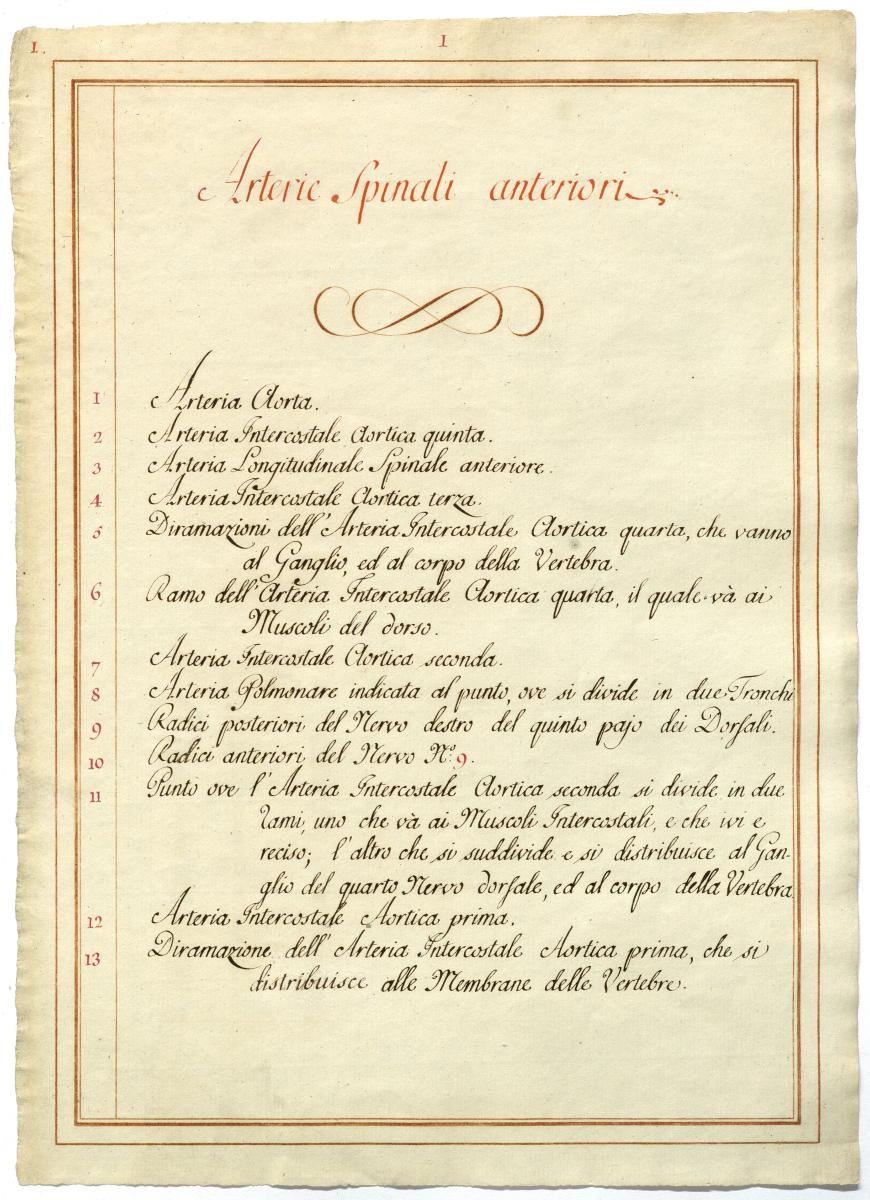 1. 1
Arterie Spinali anteriori
1 Arteria Aorta.
2 Arteria Intercostale Aortica quinta.
3 Arteria Longitudinale Spinale anteriore.
4 Arteria Intercostale Aortica terza.
5 Diramazioni dell'Arteria Intercostale Aortica quarta, che vanno
al Ganglio, ed al corpo della Vertebra.
6 Ramo dell'Arteria Intercostale Aortica quarta, il quale và ai
Muscoli del dorso.
7 Arteria Intercostale Aortica seconda.
8 Arteria Polmonare indicata al punto, ove si divide in due Tronchi
9 Radici posteriori del Nervo destro del quinto pajo dei Dorsali.
10 Radici anteriori del Nervo N.º 9.
11 Punto ove l'Arteria Intercostale Aortica seconda si divide in due
rami, uno che và ai Muscoli Intercostali, e che ivi e
reciso; l'altro che si suddivide e si distribuisce al Gan-
glio del quarto Nervo dorsale, ed al corpo della Vertebra.
12 Arteria Intercostale Aortica prima.
13 Diramazione dell'Arteria Intercostale Aortica prima, che si
distribuisce alle Membrane delle Vertebre.